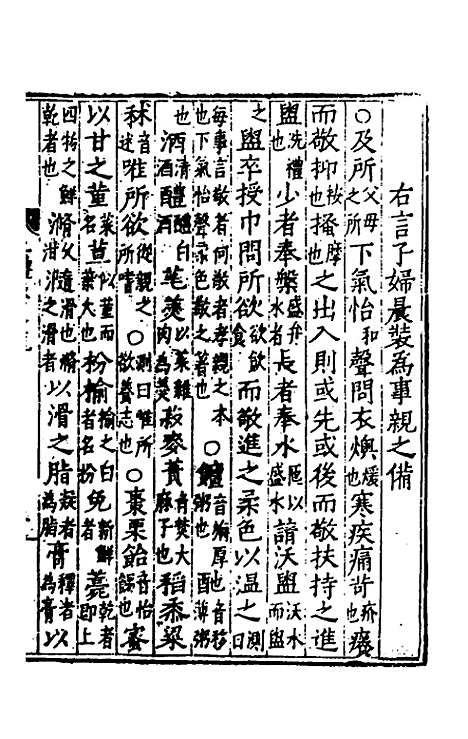 右言子婦晨裝爲事親之備
○及所父母之所下氣怡和聲問衣燠煖也寒疾痛苛疥也癢
而敬抑按也搔摩也之出入則或先或後而敬扶持之進
盥洗禮也少者奉槃盛弃水者長者奉水匜以盛水請沃盥沃水而盥
之盥卒授巾問所欲欲飲食而敬進之柔色以温之測曰
每事言敬者何敬者孝親之本也下氣怡聲柔色敬之著也○饘音旃厚粥也酏音移薄粥
也酒清酒醴白酒醴芼羹以菜雜肉爲羹菽麥蕡音焚大麻子也稻黍粱
秫音述唯所欲從親之所嗜○測曰唯所欲養志也○棗栗飴音怡餳也蜜
以甘之菫菜名荁似菫而葉大也枌榆榆之白者名枌免新鮮者薧乾者即上
四物之鮮乾者也滫久隨滑也滫瀡之滑者以滑之脂凝者爲脂膏釋者爲膏以